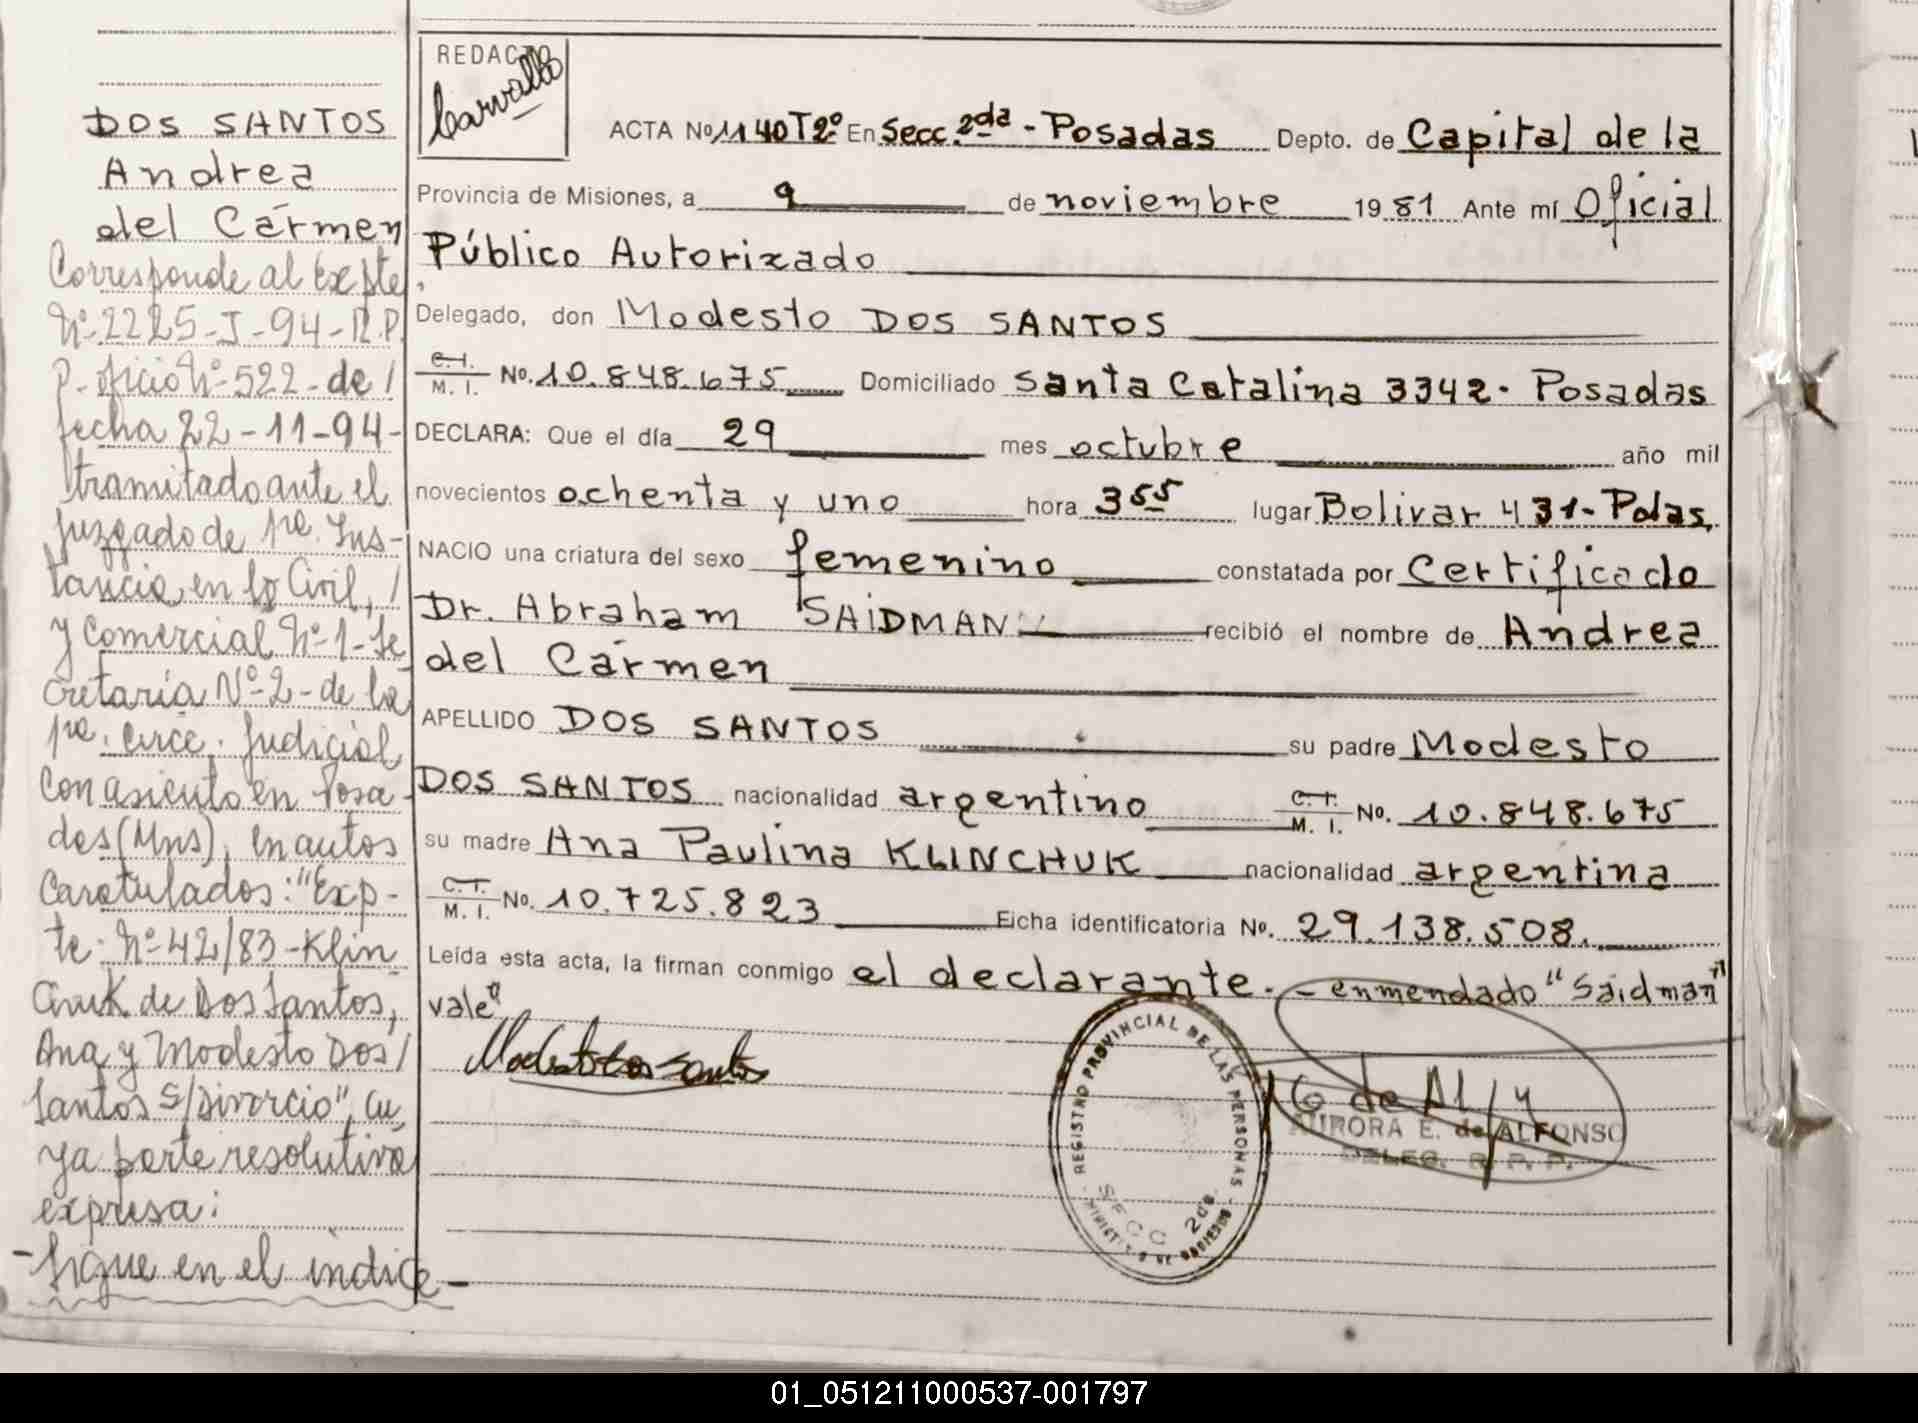 DOS SANTOS
Andrea
del Cármen
Corresponde al Expte.
Nº 2225-J-94-R.P.
p. oficio Nº 522-de/
fecha 22-11-94-
tramitado ante el
juzgado de 1ra. Ins-
tancia, en lo Civil, /
y Comercial Nº 1-Se
cretaría Nº 2-de la
1ra. Circc. Judicial
con asiento en Posa-
das (Mns), en autos
Caratulados: "Exp-
te. Nº 42/83-Klin
Chuk de Dos Santos,
Ana y Modesto Dos/
Santos s/Divorcio", cu
ya parte resolutiva
expresa:
-Sigue en el índice-
REDACTO
Carvallo
ACTA Nº 1140 Tº 2º En Secc. 2da - Posadas Depto. de Capital de la
Provincia de Misiones, a 9 de noviembre 1981 Ante mí Oficial
Público Autorizado
Delegado, don Modesto DOS SANTOS
C.I. M.I. No. 10.848.675 Domiciliado Santa Catalina 3342- Posadas
DECLARA: Que el día 29 mes octubre año mil
novecientos ochenta y uno hora 3 55 lugar Bolivar 431- Pdas,
NACIO una criatura del sexo femenino constatada por Certificado
Dr. Abraham SAIDMAN recibió el nombre de Andrea
del Cármen
APELLIDO DOS SANTOS su padre Modesto
DOS SANTOS nacionalidad argentino C.I. M.I. No. 10.848.675
su madre Ana Paulina KLINCHUK nacionalidad argentina
C.I. M.I. No. 10.725.823 Ficha identificatoria No. 29.138.508.
Leída esta acta, la firman conmigo el declarante.- enmendado "Saidman"
vale"
Modesto dos santos
REGISTRO PROVINCIAL DE LAS PERSONAS
SECC 2da
MINISTERIO DE GOBIERNO
AURORA E. de ALFONSO
DELEG. R. P. P.
01_051211000537-001797